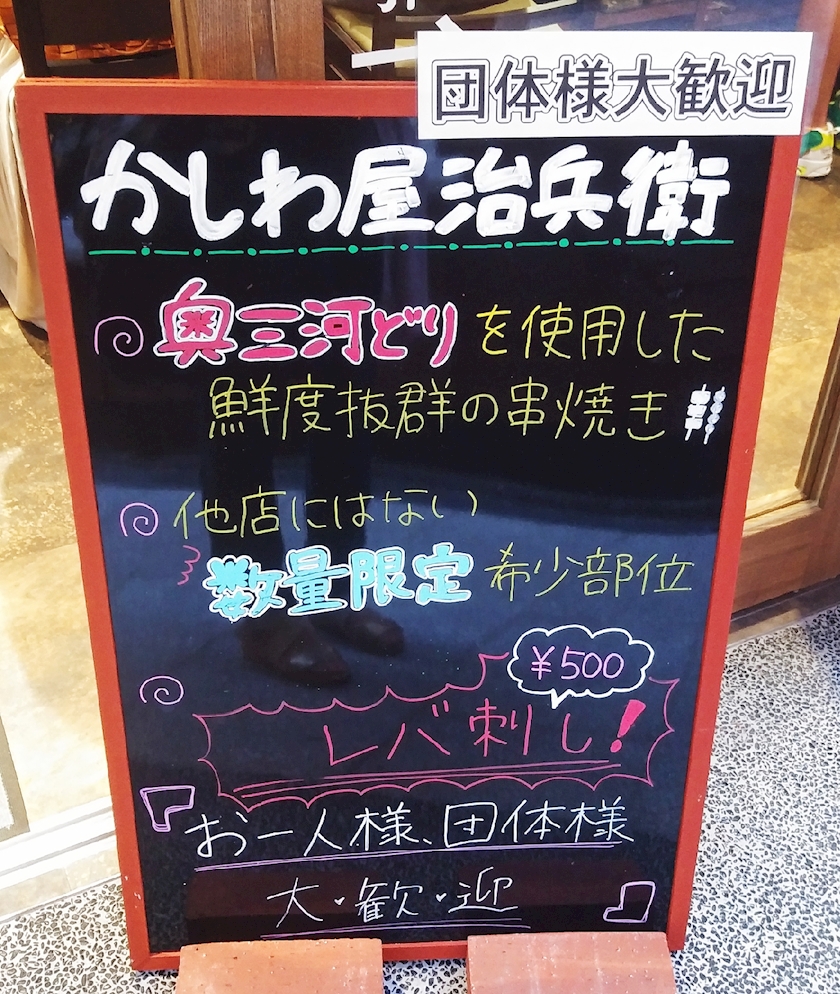 団体様大歓迎
かしわ屋治兵衛
奥三河どりを使用した
鮮度抜群の串焼き
他店にはない
数量限定希少部位
¥500
レバ刺し!
お一人様、団体様
大・歓・迎